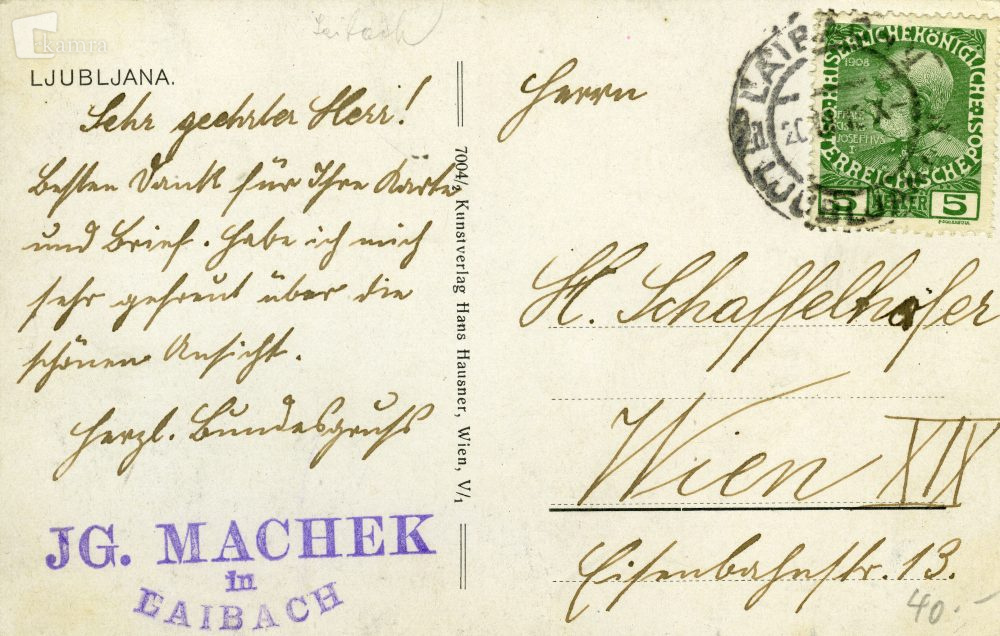 kamra
Laibach
LJUBLJANA.
Sehr geehrter Herr!
Besten Dank für Ihre Karte
und Brief. Habe ich mich
sehr gefreut über die
schönen Ansicht.
Herzl. Bundesgruß
JG. MACHEK
in
LAIBACH
7004/2 Kunstverlag Hans Hausner, Wien, V/1
LAIBACH
LJUBLJANA
1908
KAISERLICHE KÖNIGLICHE
ÖSTERREICHISCHE POST
5 HELLER 5
Herrn
H. Schaffelhofer
Wien XIX
Eisenbahnstr. 13.
40.-